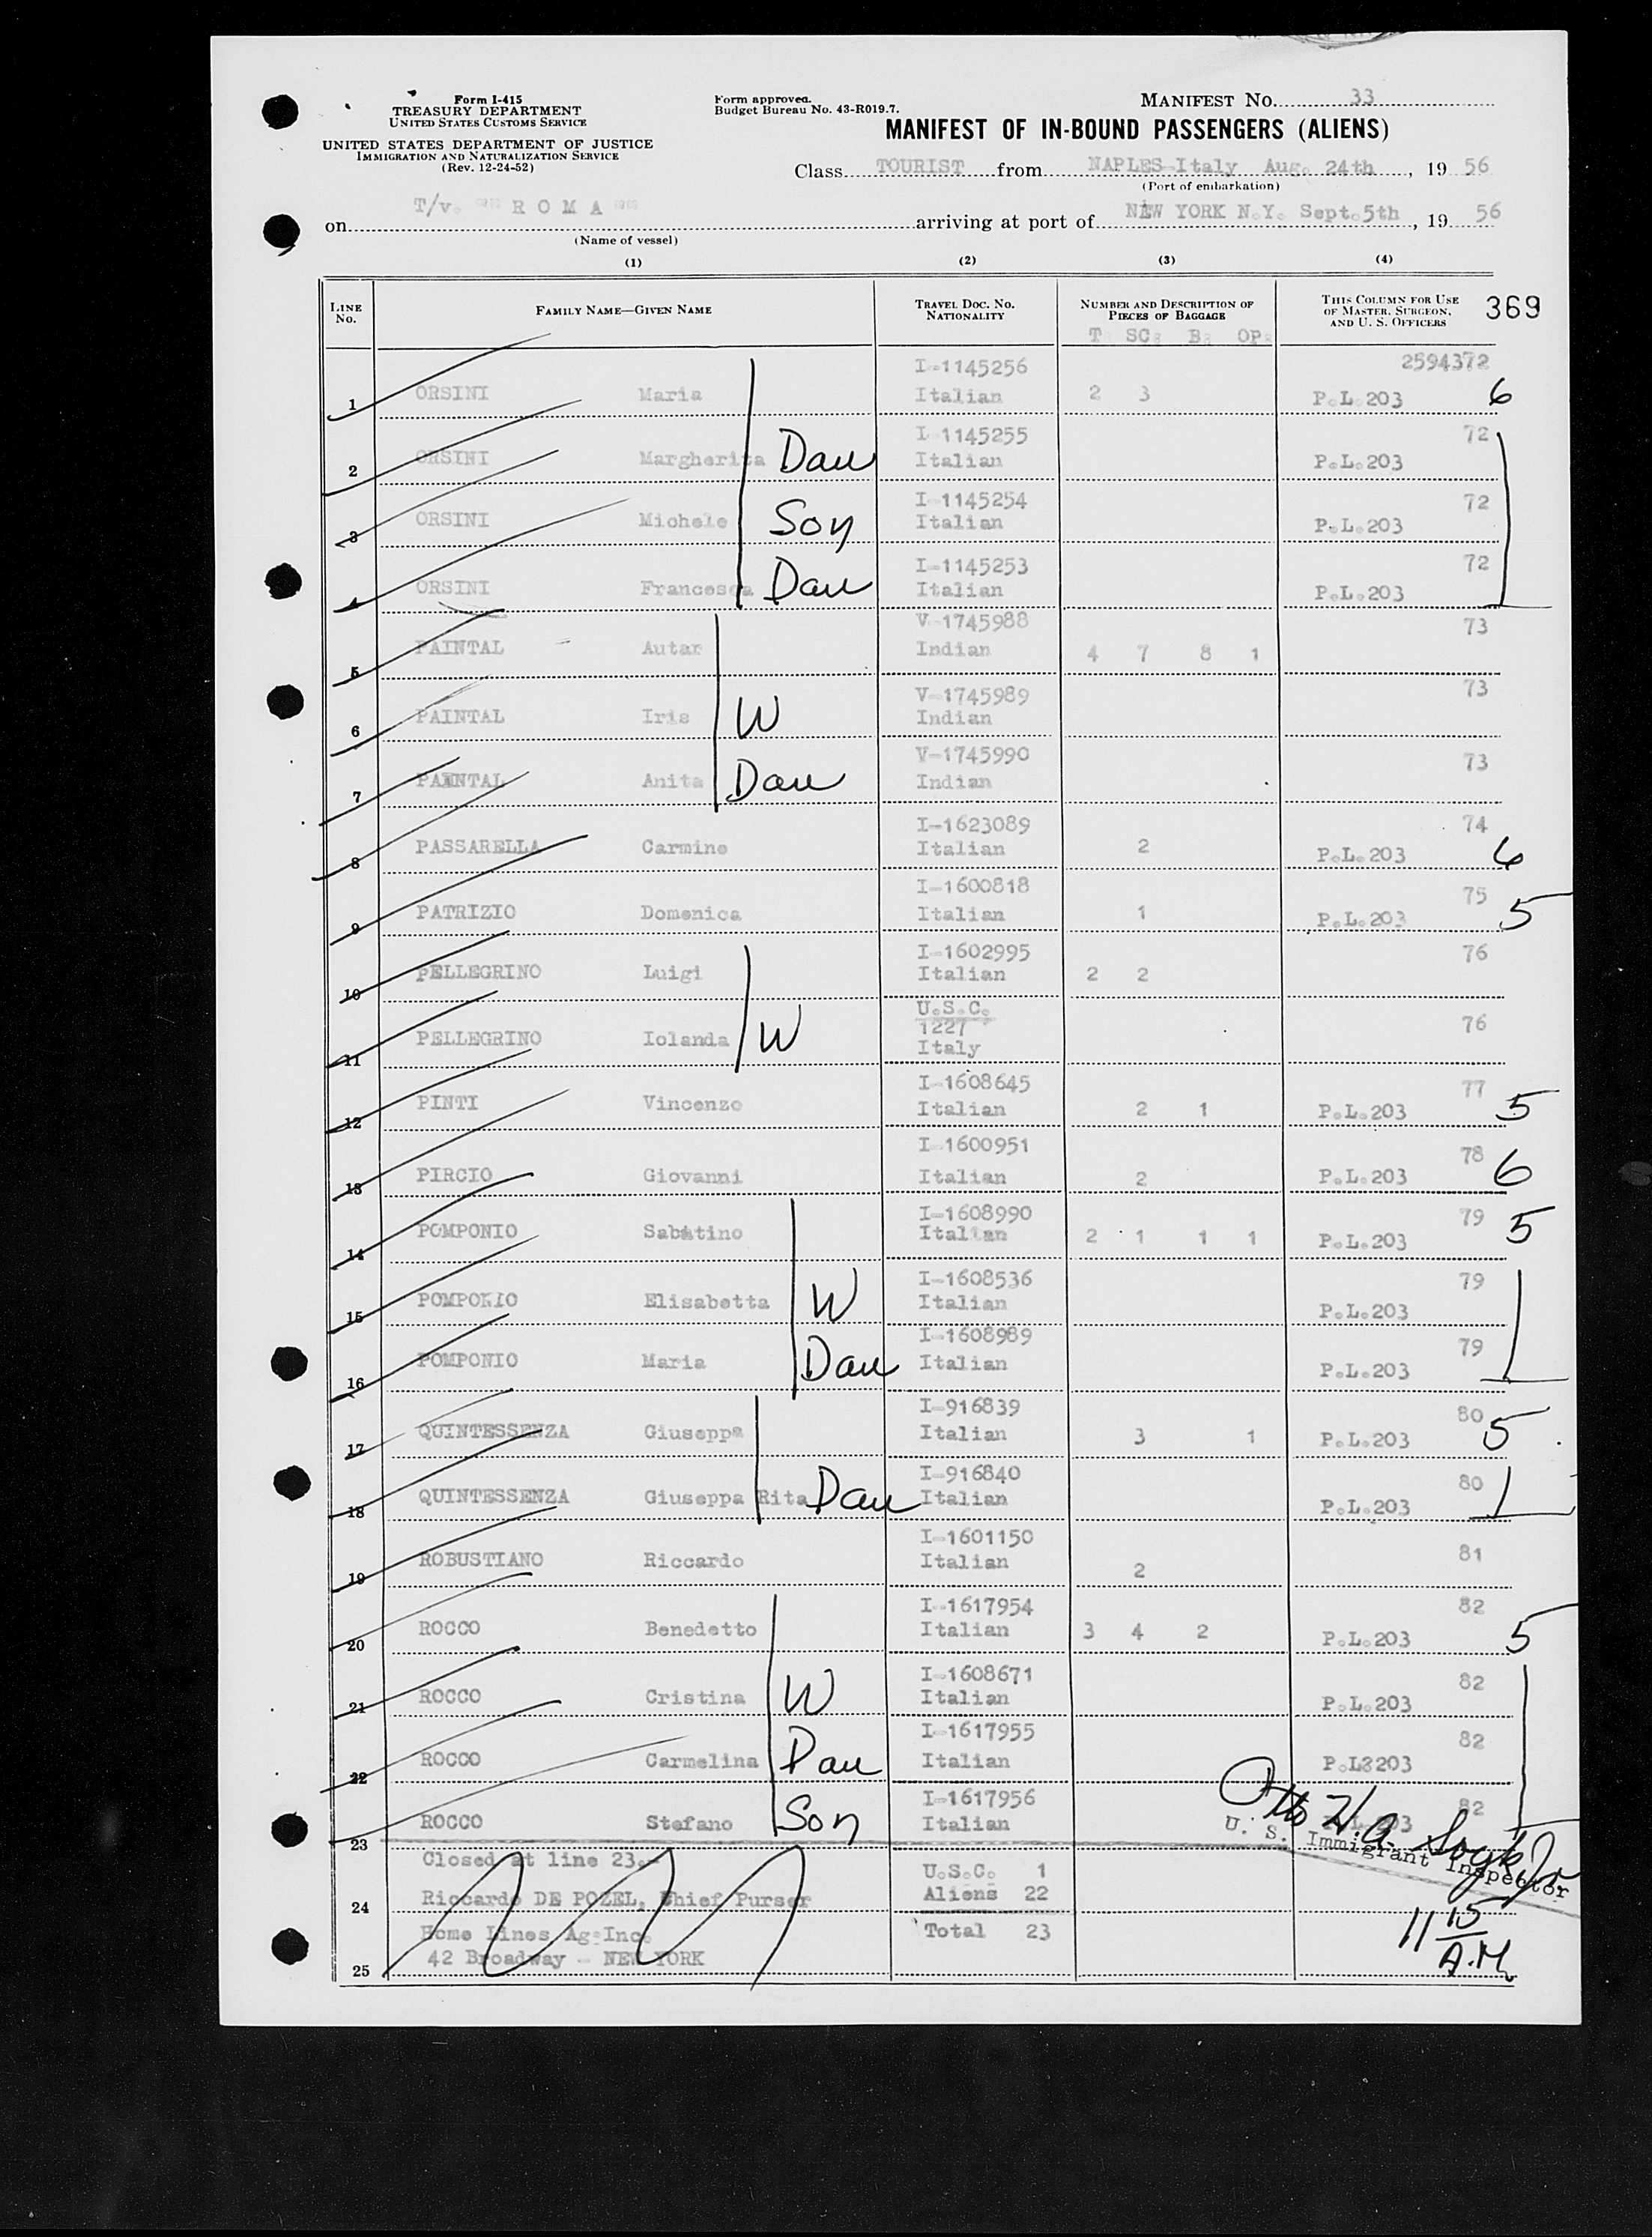 Form I-415
TREASURY DEPARTMENT
UNITED STATES CUSTOMS SERVICE
UNITED STATES DEPARTMENT OF JUSTICE
IMMIGRATION AND NATURALIZATION SERVICE
(Rev. 12-24-52)
Form approved.
Budget Bureau No. 43-R019.7.
MANIFEST No. 33
MANIFEST OF IN-BOUND PASSENGERS (ALIENS)
Class TOURIST from NAPLES-Italy Aug. 24th, 19 56
(Port of embarkation)
on T/v. "ROMA" arriving at port of NEW YORK N.Y. Sept.5th, 19 56
(Name of vessel)
(1) (2) (3) (4)
LINE No. FAMILY NAME—GIVEN NAME TRAVEL DOC. NO. NATIONALITY NUMBER AND DESCRIPTION OF PIECES OF BAGGAGE THIS COLUMN FOR USE OF MASTER, SURGEON, AND U. S. OFFICERS 369
T SC B OP
I-1145256 2594372
1 ORSINI Maria Italian 2 3 P.L.203 6
I-1145255 72
2 ORSINI Margherita Dau Italian P.L.203
I-1145254 72
3 ORSINI Michele Son Italian P.L.203
I-1145253 72
4 ORSINI Francesca Dau Italian P.L.203
V-1745988 73
5 PAINTAL Autar Indian 4 7 8 1
V-1745989 73
6 PAINTAL Iris W Indian
V-1745990 73
7 PAINTAL Anita Dau Indian
I-1623089 74
8 PASSARELLA Carmine Italian 2 P.L.203 6
I-1600818 75
9 PATRIZIO Domenica Italian 1 P.L.203 5
I-1602995 76
10 PELLEGRINO Luigi Italian 2 2
U.S.C.
1227 76
11 PELLEGRINO Iolanda W Italy
I-1608645 77
12 PINTI Vincenzo Italian 2 1 P.L.203 5
I-1600951 78
13 PIRCIO Giovanni Italian 2 P.L.203 6
I-1608990 79
14 POMPONIO Sabatino Italian 2 1 1 1 P.L.203 5
I-1608536 79
15 POMPONIO Elisabetta W Italian P.L.203
I-1608989 79
16 POMPONIO Maria Dau Italian P.L.203
I-916839 80
17 QUINTESSENZA Giuseppa Italian 3 1 P.L.203 5
I-916840 80
18 QUINTESSENZA Giuseppa Rita Dau Italian P.L.203
I-1601150 81
19 ROBUSTIANO Riccardo Italian 2
I-1617954 82
20 ROCCO Benedetto Italian 3 4 2 P.L.203 5
I-1608671 82
21 ROCCO Cristina W Italian P.L.203
I-1617955 82
22 ROCCO Carmelina Dau Italian P.L8203
I-1617956 82
23 ROCCO Stefano Son Italian
Otto H.A.
U. S. Immigrant Inspector
Closed at line 23.- U.S.C. 1
24 Riccardo DE POZEL, Chief Purser Aliens 22
Home Lines Ag.Inc. Total 23
25 42 Broadway - NEW YORK
11 15 A.M.